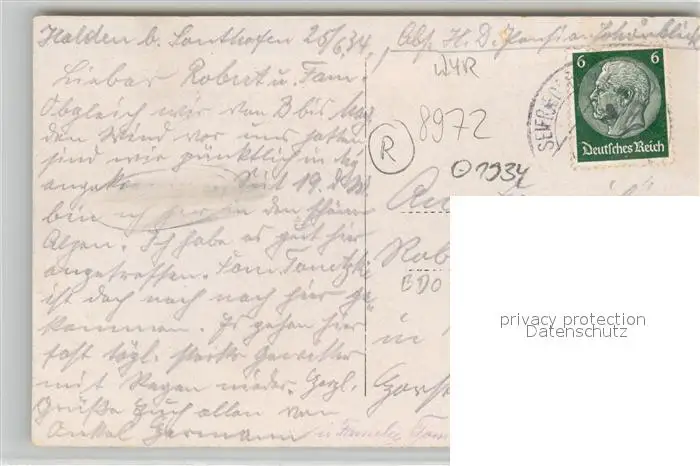 Halden b. Sonthofen 25/6.34.
Abs. H. D. Pension
Lieber Robert u. Fam.
Obgleich wir von B bis
den Wind vor uns hatten
sind wir pünktlich in
angeko Seit 19. d. M.
bin ich hier in den schönen
Alpen. Ich habe es gut hier
angetroffen. Fam.
ist doch noch nach hier ge
kommen. Es gehen hier
fast tägl. starke Gewitter
mit Regen nieder. Herzl.
Grüße Euch allen von
Onkel Hermann
u Familie
W4R
8972
R
1934
6 6
Deutsches Reich
An
Rob
BDO
in
privacy protection
Datenschutz